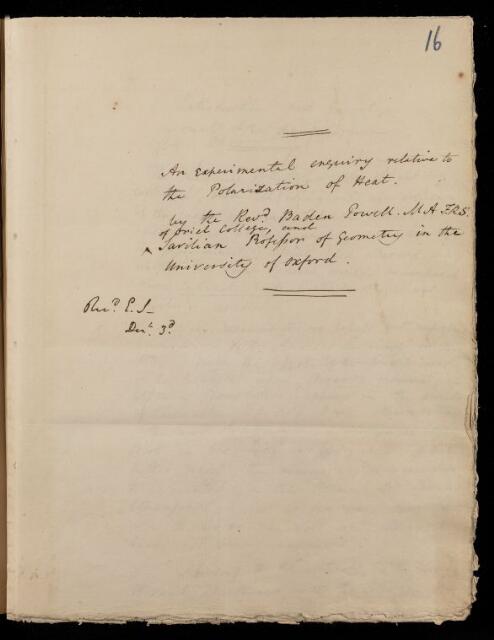 16
An experimental enquiry relative to
the Polarization of Heat.
by the Rev.d Baden Powell. M A F.R.S.
of Oriel College, and
Savilian Professor of Geometry in the
University of Oxford.
Dec.r 3.d